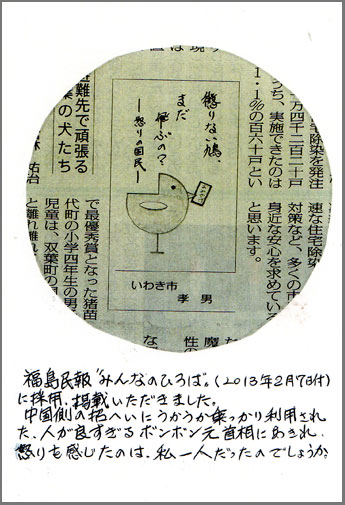 宅除染を発注
万四千二百二十戸
うち、実施できたのは
１・１％の百六十戸とい
速な住宅除染
対策など、多くの市
身近な安心を求めてい
と思います。
懲りない鳩、
まだ
飛ぶの？
―怒りの国民―
いわき市
孝 男
避難先で頑張る
葉の犬たち
祐治
で最優秀賞となった猪苗
代町の小学四年生の男
児童は、双葉町の
と離れ離れ
福島民報〝みんなのひろば〟。(2013年2月7日付)
に採用、掲載いただきました。
中国側の招へいにうかうか乗っかり利用され
た、人が良すぎるボンボン元首相にあきれ、
怒りを感じたのは、私一人だったのでしょうか。